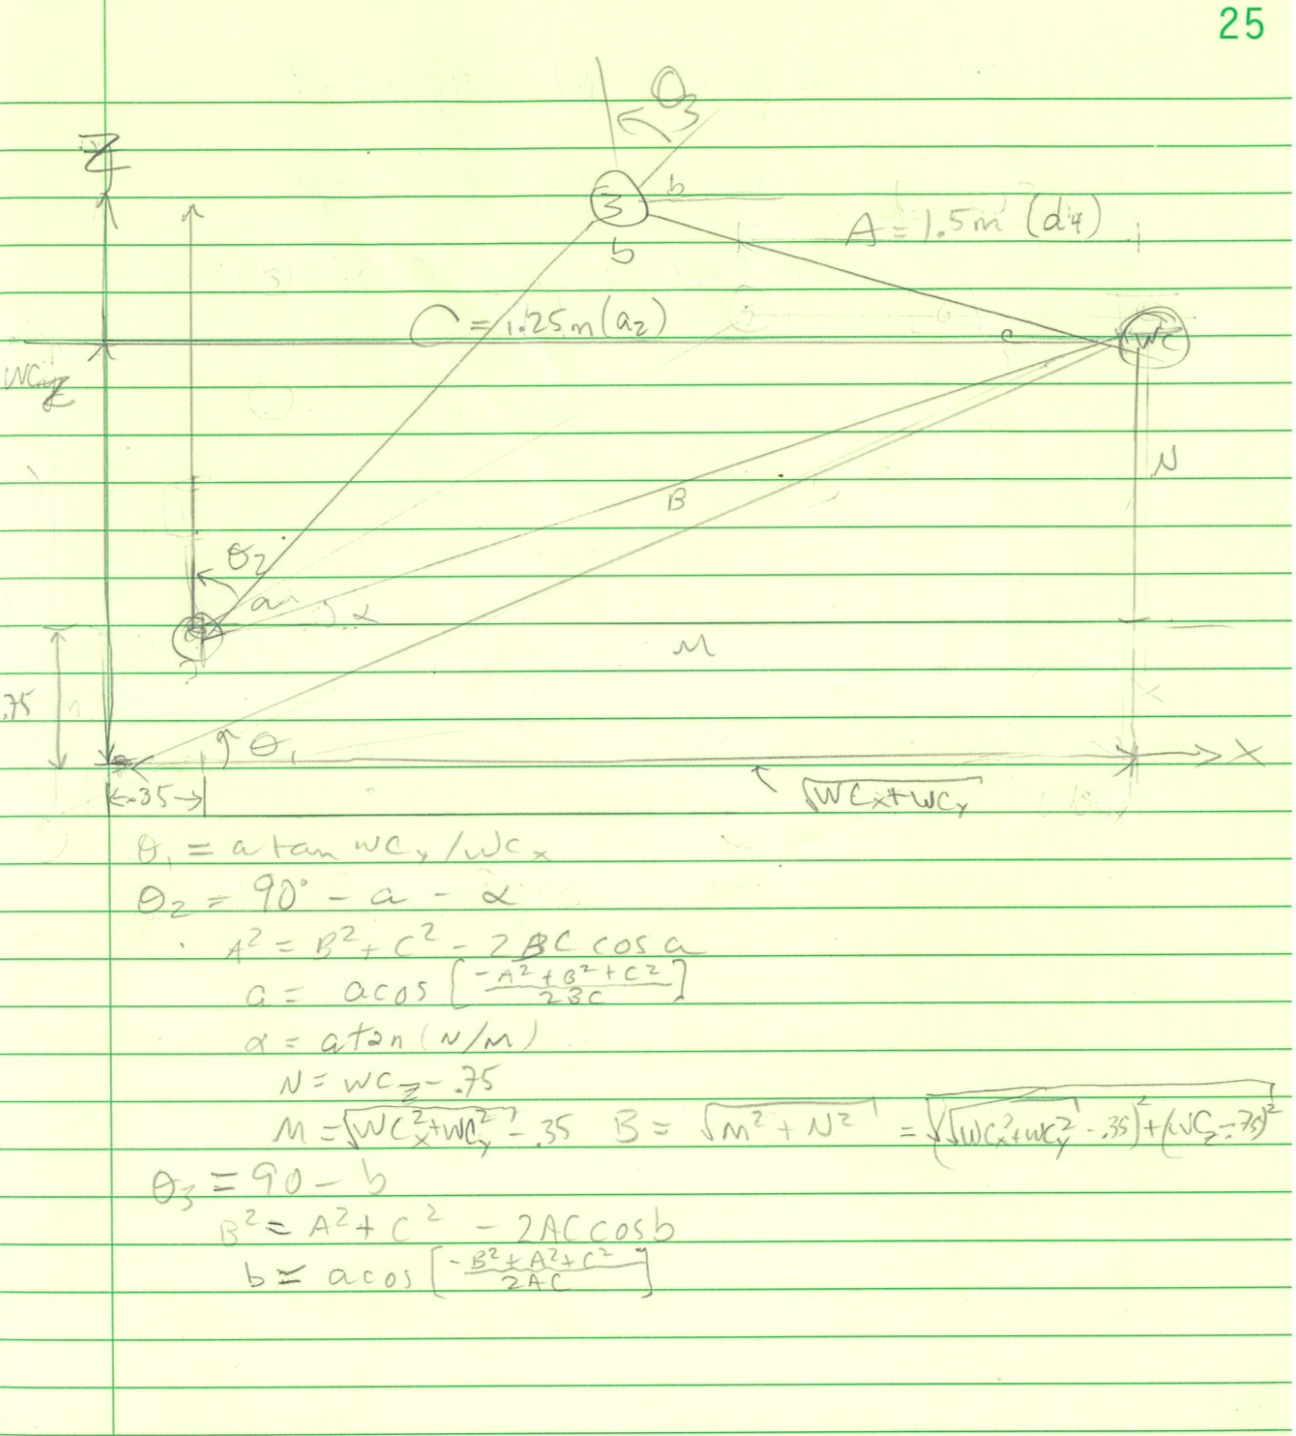 25
Z
θ3
3
b
b
A = 1.5m (d4)
C = 1.25m (a2)
c
WC
WCZ
N
B
θ2
a
α
M
.75
θ1
X
.35
√WCx+WCy
θ1 = atan WCy/WCx
θ2 = 90° - a - α
A² = B² + C² - 2BC cos a
a = acos [(-A² + B² + C²)/2BC]
α = atan (N/M)
N = WCZ - .75
M = √WCx²+WCy² - .35 B = √M² + N² = √(√WCx²+WCy² - .35)² + (WCZ - .75)²
θ3 = 90 - b
B² = A² + C² - 2AC cos b
b = acos [(-B² + A² + C²)/2AC]